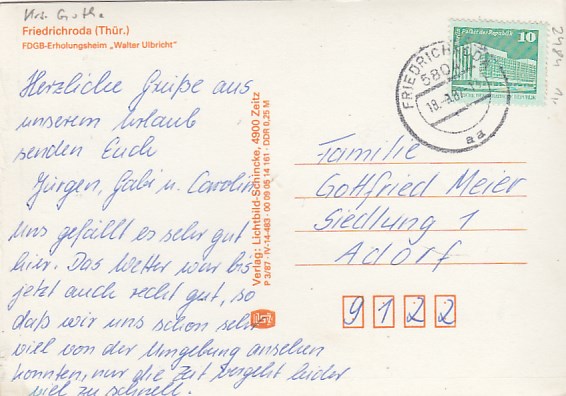 Friedrichroda (Thür.)
FDGB-Erholungsheim „Walter Ulbricht"
Herzliche Grüße aus
unserem Urlaub
senden Euch
Jürgen, Gabi u. Carolin
Uns gefällt es sehr gut
hier. Das Wetter war bis
jetzt auch recht gut, so
daß wir uns schon sehr
viel von der Umgebung ansehen
konnten, nur die Zeit vergeht leider
viel zu schnell.
Verlag: Lichtbild-Schincke, 4900 Zeitz
P 3/87 · IV-14-483 · 00 09 05 14 161 · DDR 0,25 M
10
FRIEDRICHRODA
580
18.
aa
Familie
Gottfried Meier
Siedlung 1
Adorf
9122